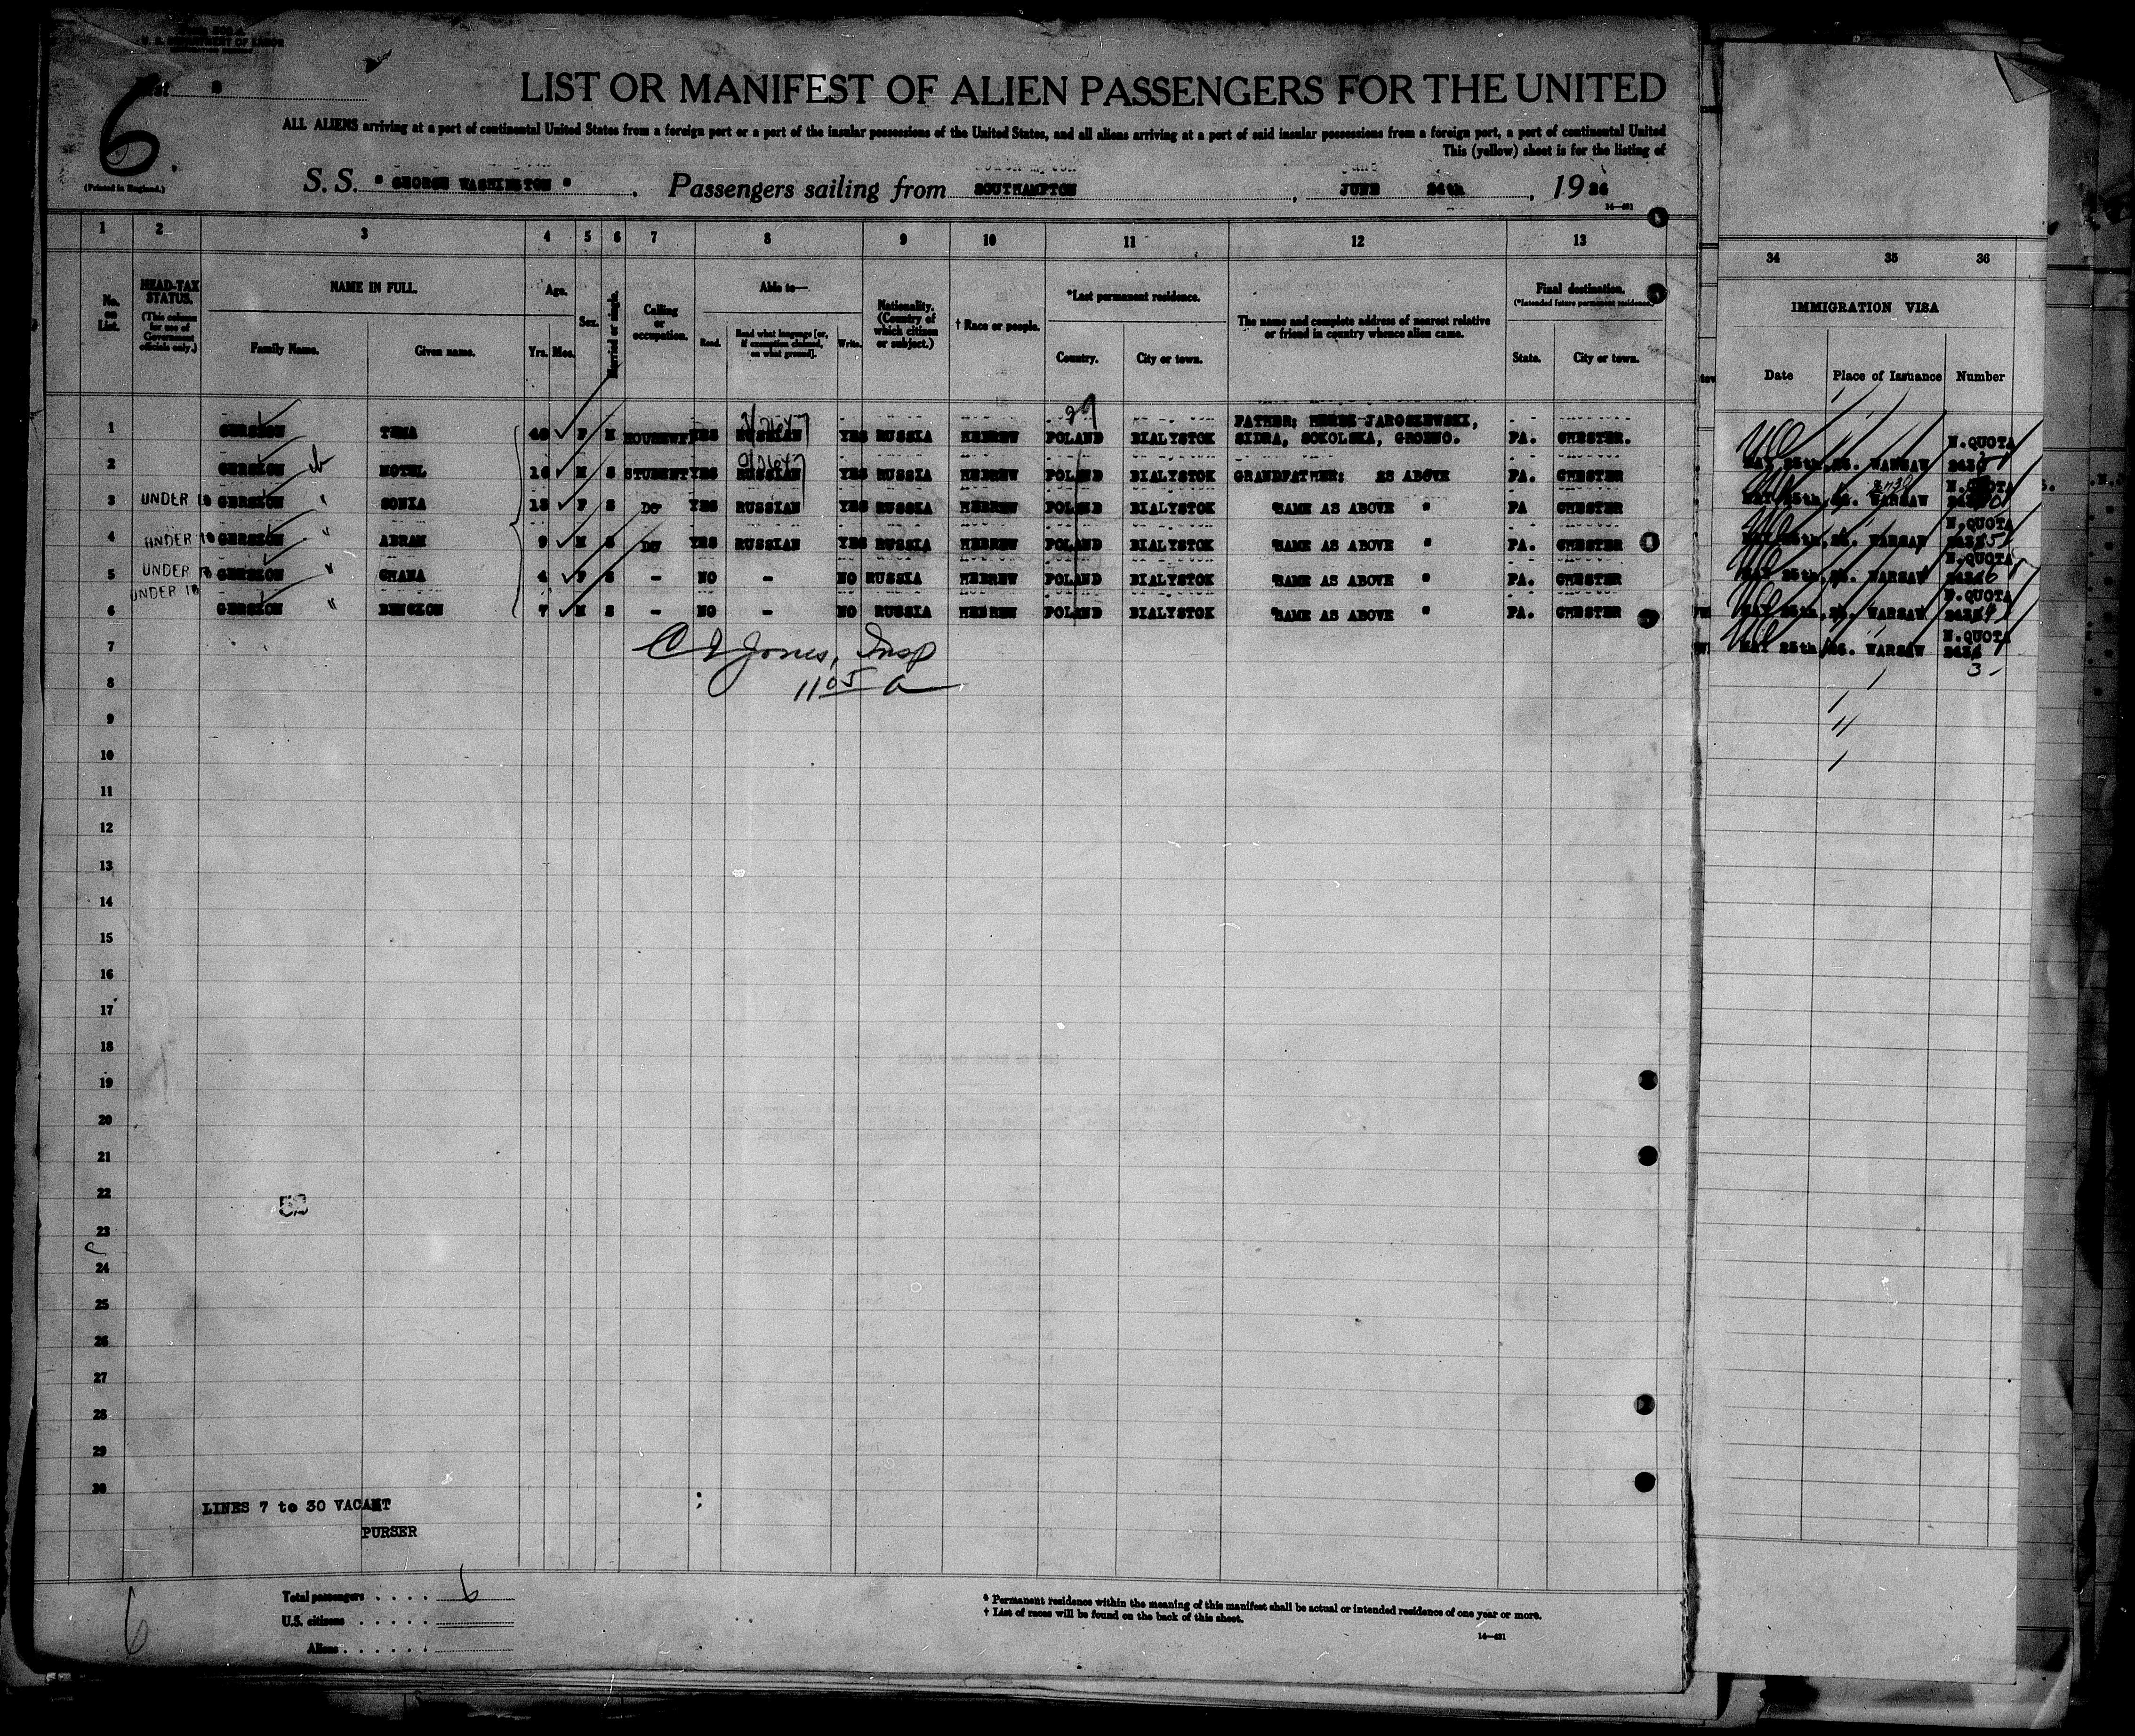 U. S. DEPARTMENT OF LABOR
List
6.
(Printed in England.)
LIST OR MANIFEST OF ALIEN PASSENGERS FOR THE UNITED
ALL ALIENS arriving at a port of continental United States from a foreign port or a port of the insular possessions of the United States, and all aliens arriving at a port of said insular possessions from a foreign port, a port of continental United
This (yellow) sheet is for the listing of
S. S. " GEORGE WASHINGTON " . Passengers sailing from SOUTHAMPTON , JUNE 24th , 1926
14—481
1 2 3 4 5 6 7 8 9 10 11 12 13 34 35 36
No. on List.
HEAD-TAX STATUS. (This column for use of Government officials only.)
NAME IN FULL.
Family Name. Given name.
Age. Yrs. Mos.
Sex.
Married or single.
Calling or occupation.
Able to—
Read. Read what language [or, if exemption claimed, on what ground]. Write.
Nationality. (Country of which citizen or subject.)
† Race or people.
*Last permanent residence.
Country. City or town.
The name and complete address of nearest relative or friend in country whence alien came.
Final destination. (*Intended future permanent residence.)
State. City or town.
IMMIGRATION VISA
Date Place of Issuance Number
FATHER: JAROSZEWSKI,
1 GERSZON TEMA 40 F M HOUSEWFE YES RUSSIAN YES RUSSIA HEBREW POLAND BIALYSTOK SIDRA, SOKOLSKA, GRODNO. PA. CHESTER.
2 GERSZON MOTEL 16 M S STUDENT YES RUSSIAN YES RUSSIA HEBREW POLAND BIALYSTOK GRANDFATHER: AS ABOVE PA. CHESTER
3 UNDER 16 GERSZON " SONIA 13 F S DO YES RUSSIAN YES RUSSIA HEBREW POLAND BIALYSTOK SAME AS ABOVE " PA CHESTER
4 UNDER 16 GERSZON " ABRAM 9 M S DO YES RUSSIAN YES RUSSIA HEBREW POLAND BIALYSTOK SAME AS ABOVE " PA. CHESTER
5 UNDER 16 GERSZON " CHANA 4 F S - NO - NO RUSSIA HEBREW POLAND BIALYSTOK SAME AS ABOVE " PA. CHESTER
UNDER 16
6 GERSZON " BENCZON 7 M S - NO - NO RUSSIA HEBREW POLAND BIALYSTOK SAME AS ABOVE " PA. CHESTER
N.QUOTA
MAY 25th, 26. WARSAW
N.QUOTA
MAY 25th, 26. WARSAW
N.QUOTA
MAY 25th, 26. WARSAW
N.QUOTA
MAY 25th, 26. WARSAW
N.QUOTA
MAY 25th, 26. WARSAW
N.QUOTA
MAY 25th, 26. WARSAW
3
C I Jones, Insp
11 05 a
7
8
9
10
11
12
13
14
15
16
17
18
19
20
21
22
52
23
24
25
26
27
28
29
30
LINES 7 to 30 VACANT
PURSER
Total passengers . . . . 6
U.S. citizens . . . . .
Aliens . . . . . .
6
* Permanent residence within the meaning of this manifest shall be actual or intended residence of one year or more.
† List of races will be found on the back of this sheet.
14—481